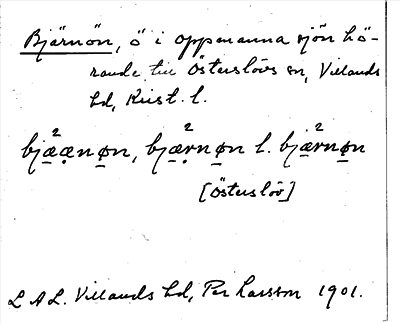 Bjärnön, ö i Oppmanna sjön hö-
rande till Österslövs sn, Villands
hd, Krist. l.
bjæ̠²æ̣nø̠n, bjæ̣²rnø̠n l. bjæ̠²rnø̠n
[Österslöv]
L A L. Villands hd, Per Larsson 1901.